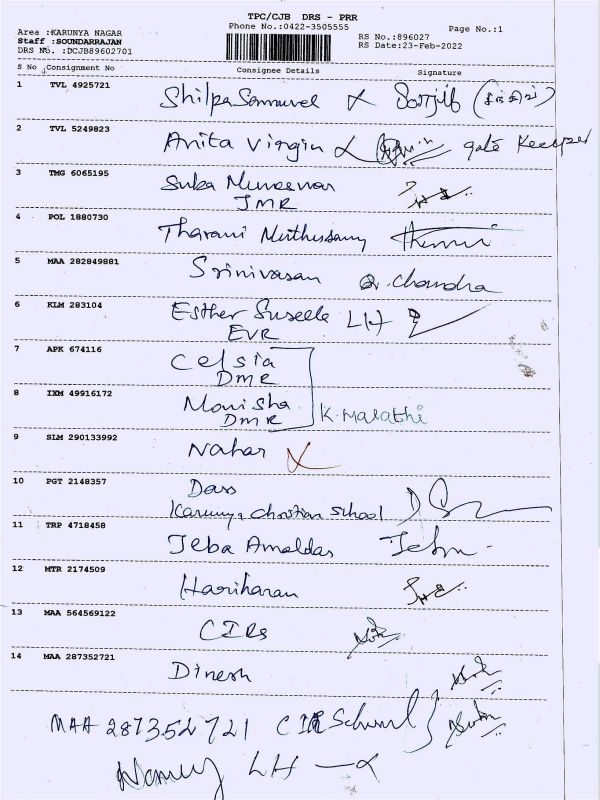 TPC/CJB DRS - PRR
Phone No.:0422-3505555
Page No.:1
Area :KARUNYA NAGAR
Staff :SOUNDARRAJAN
DRS No. :DCJB89602701
RS No.:896027
RS Date:23-Feb-2022
S No Consignment No Consignee Details Signature
1 TVL 4925721 Shilpa Samuvel
2 TVL 5249823 Anita Virgin gate Keeper
3 TMG 6065195 Suba
JMR
4 POL 1880730 Tharani Muthusamy
5 MAA 282849881 Srinivasan Chandra
6 KLM 283104 Esther Suseela LH
EVR
7 APK 674116 Celsia
DMR
8 IXM 49916172 Monisha
DMR K. Malathi
9 SLM 290133992 Nahar
10 PGT 2148357 Dass
Karunya Christian School
11 TRP 4718458 Jeba Arnoldas
12 MTR 2174509 Hariharan
13 MAA 564569122 CIRs
14 MAA 287352721 Dinesh
MAA 287352721
LH